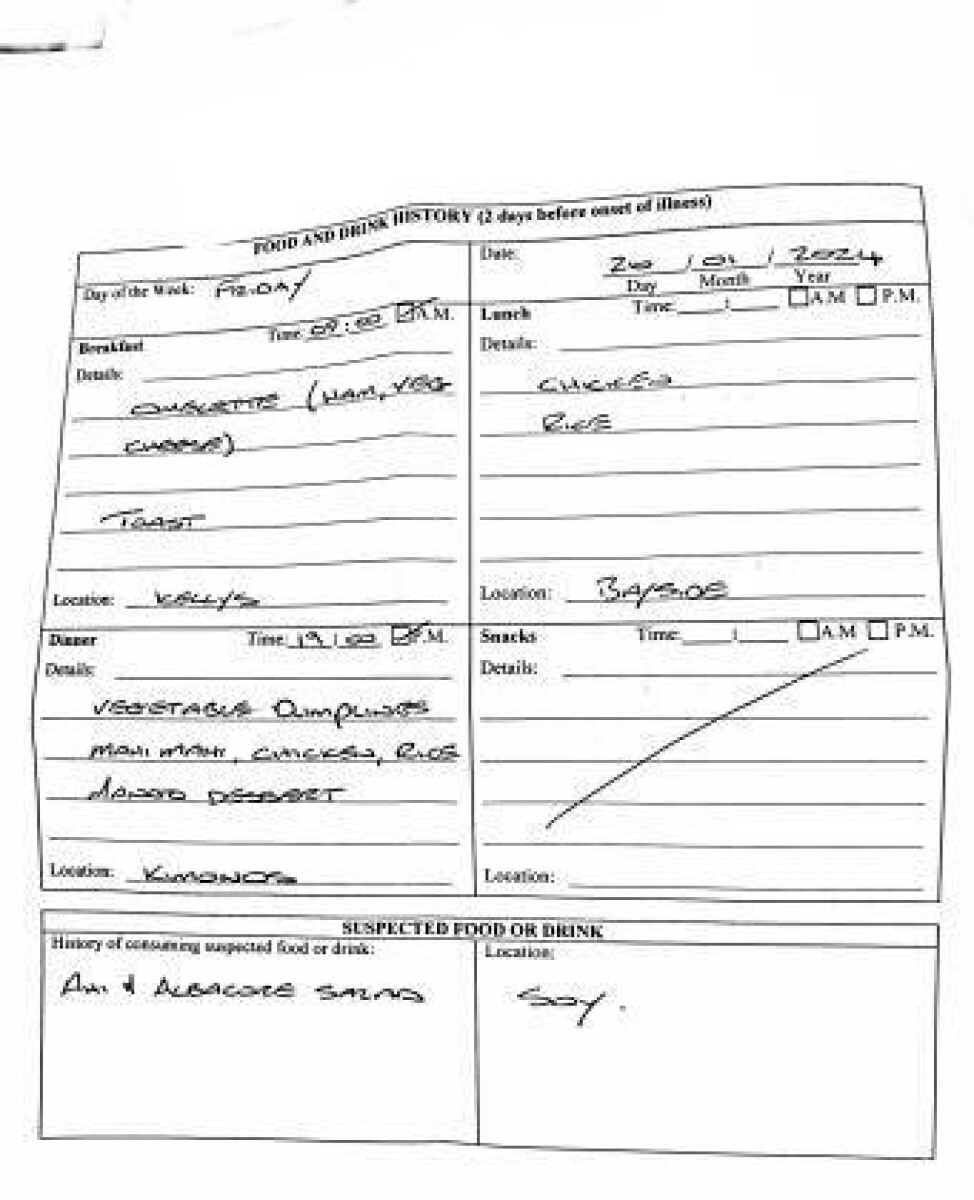 FOOD AND DRINK HISTORY (2 days before onset of illness)
Day of the Week: FRIDAY
Date: 26 / 01 / 2024
Day Month Year
Breakfast Time 09:00 A.M.
Details:
OMELETTE (HAM, VEG
CHEESE)
TOAST
Location: KELLYS
Lunch Time : A.M P.M.
Details:
CHICKEN
RICE
Location: BAYSIDE
Dinner Time: 19:00 P.M.
Details:
VEGETABLE DUMPLINGS
MAHI MAHI, CHICKEN, RICE
DESSERT
Location: KIMONOS
Snacks Time : A.M P.M.
Details:
Location:
SUSPECTED FOOD OR DRINK
History of consuming suspected food or drink:
AHI & ALBACORE
Location:
SOY.